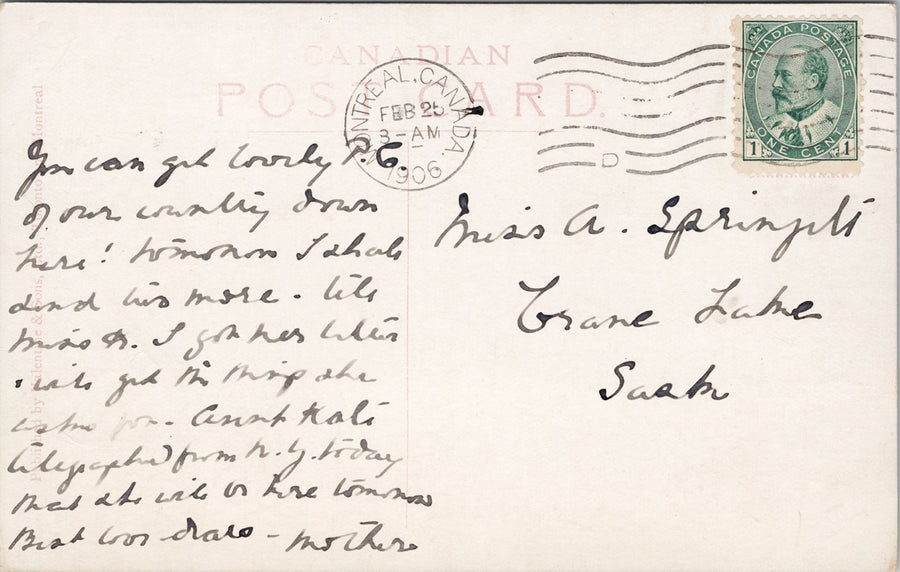 CANADIAN
POST CARD.
MONTREAL, CANADA.
FEB 25
8-AM
1906
D
CANADA POSTAGE
1 ONE CENT 1
You can get lovely P.C.
of our country down
here! tomorrow I shall
send two more. tell
Miss R. I got her letter
& will get the things she
asks for. Aunt Kate
telegraphed from N.Y. today
that she will be here tomorrow
Best love dears - Mother
Miss A. Springett
Crane Lake
Sask